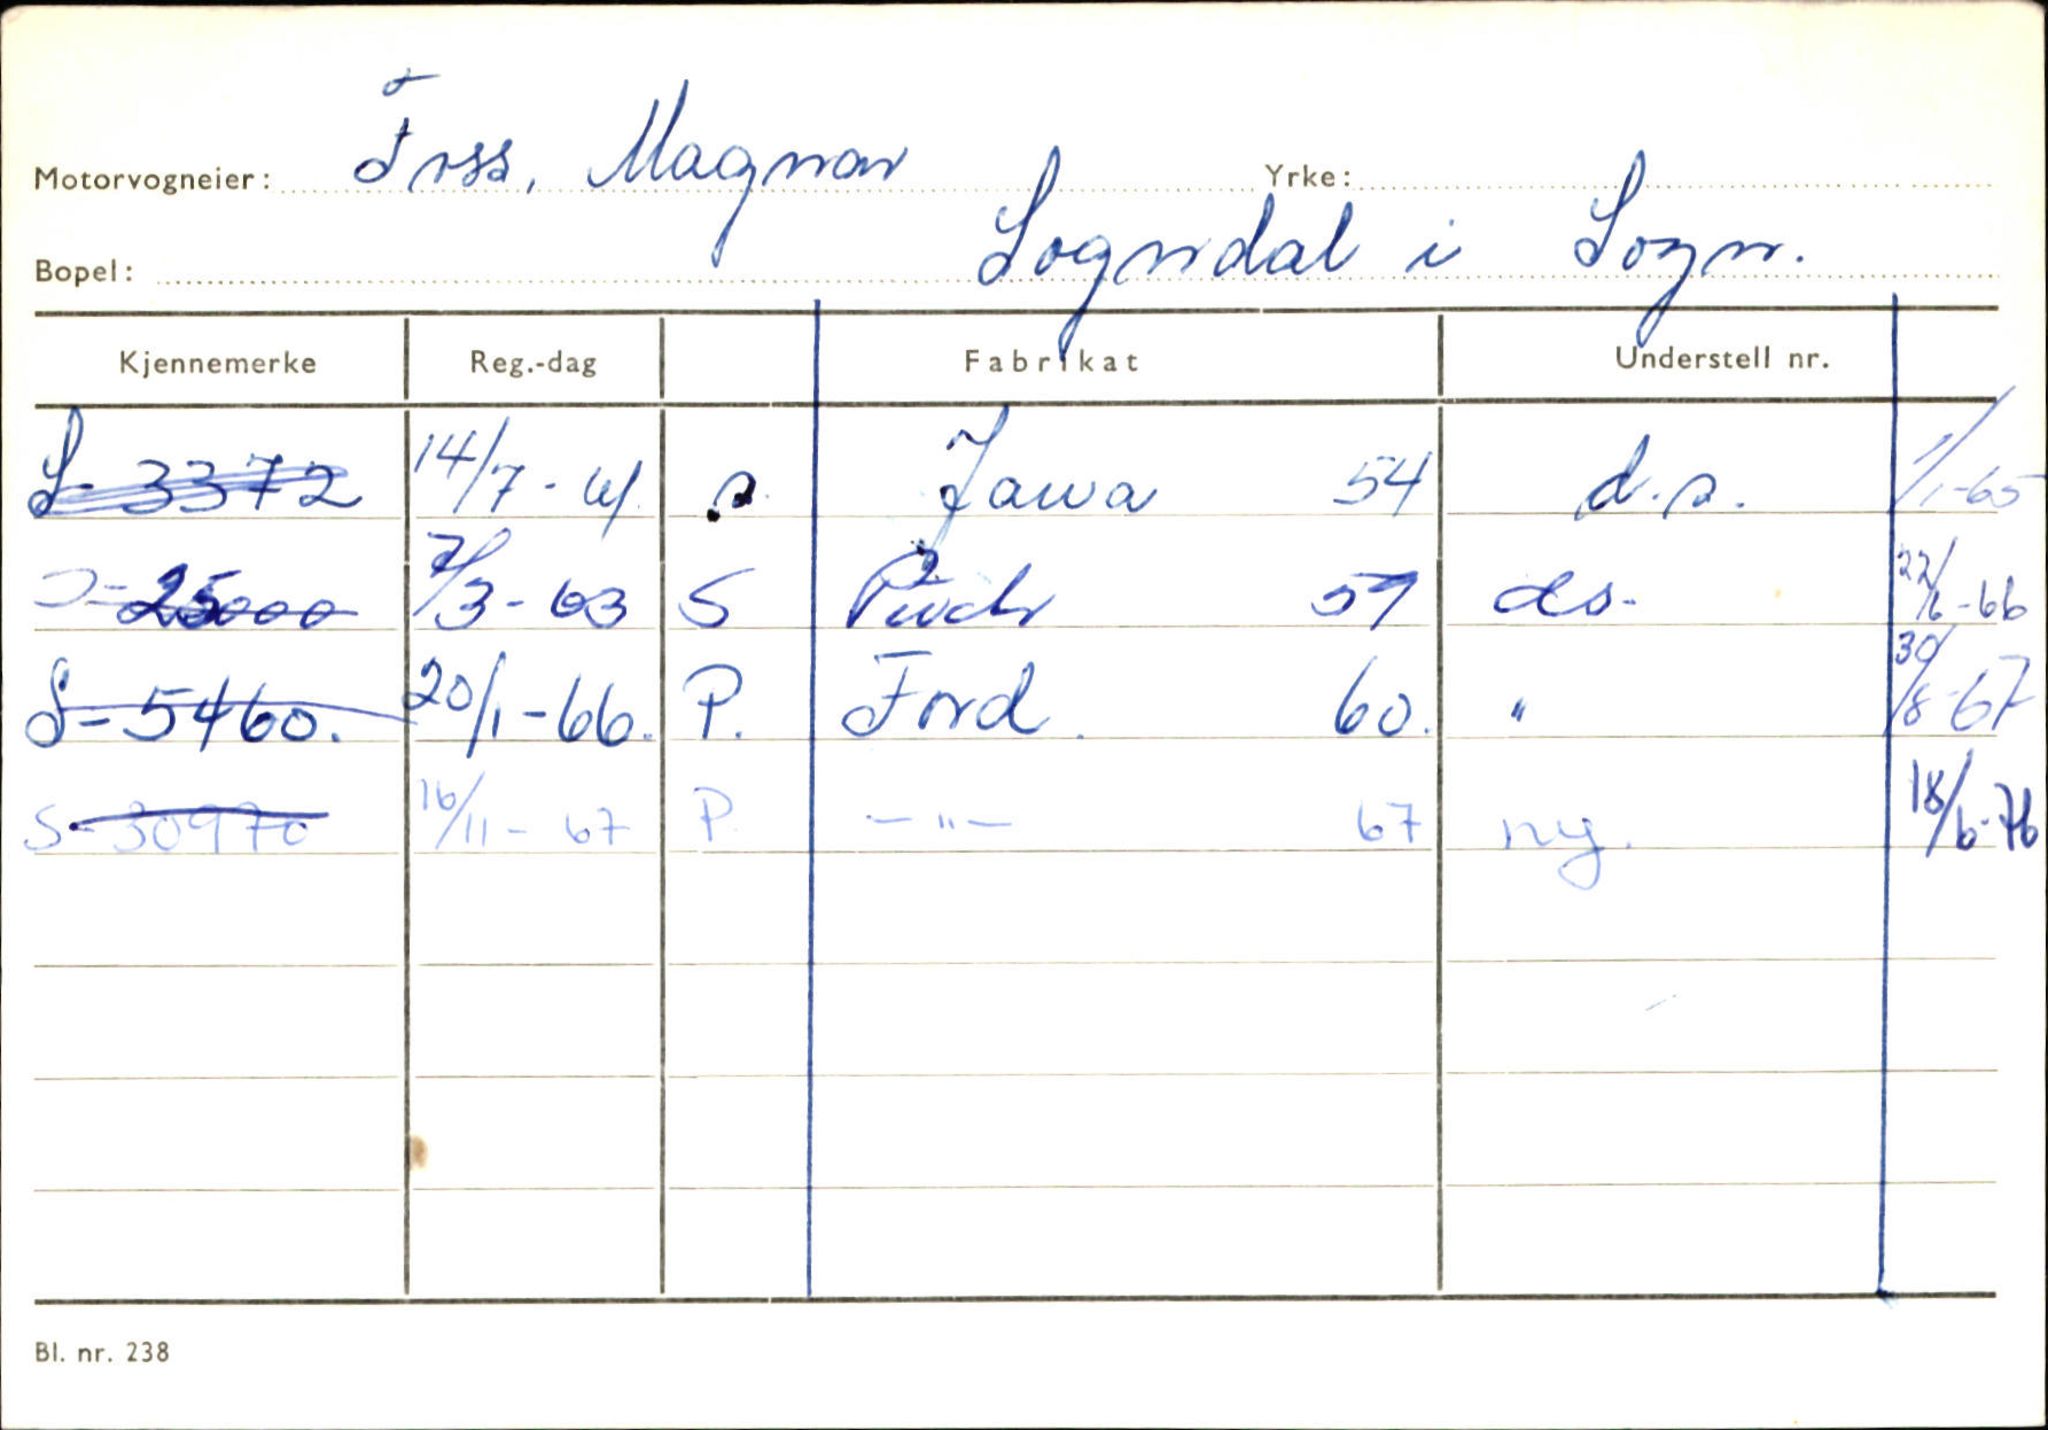 Motorvogneier: Foss, Magnar Yrke:
Bopel: Sogndal i Sogn.
Kjennemerke Reg.-dag Fabrikat Understell nr.
S- 3372 14/7 - 61. s. Jawa 54 d.s. 1/1-65
S-25000 7/3 - 63 S Puch 59 ds- 22/6-66
S-5460. 20/1-66. P. Ford. 60. " 30/8-67
S-30970 16/11- 67 P. -"- 67 ny. 18/6-76
Bl. nr. 238